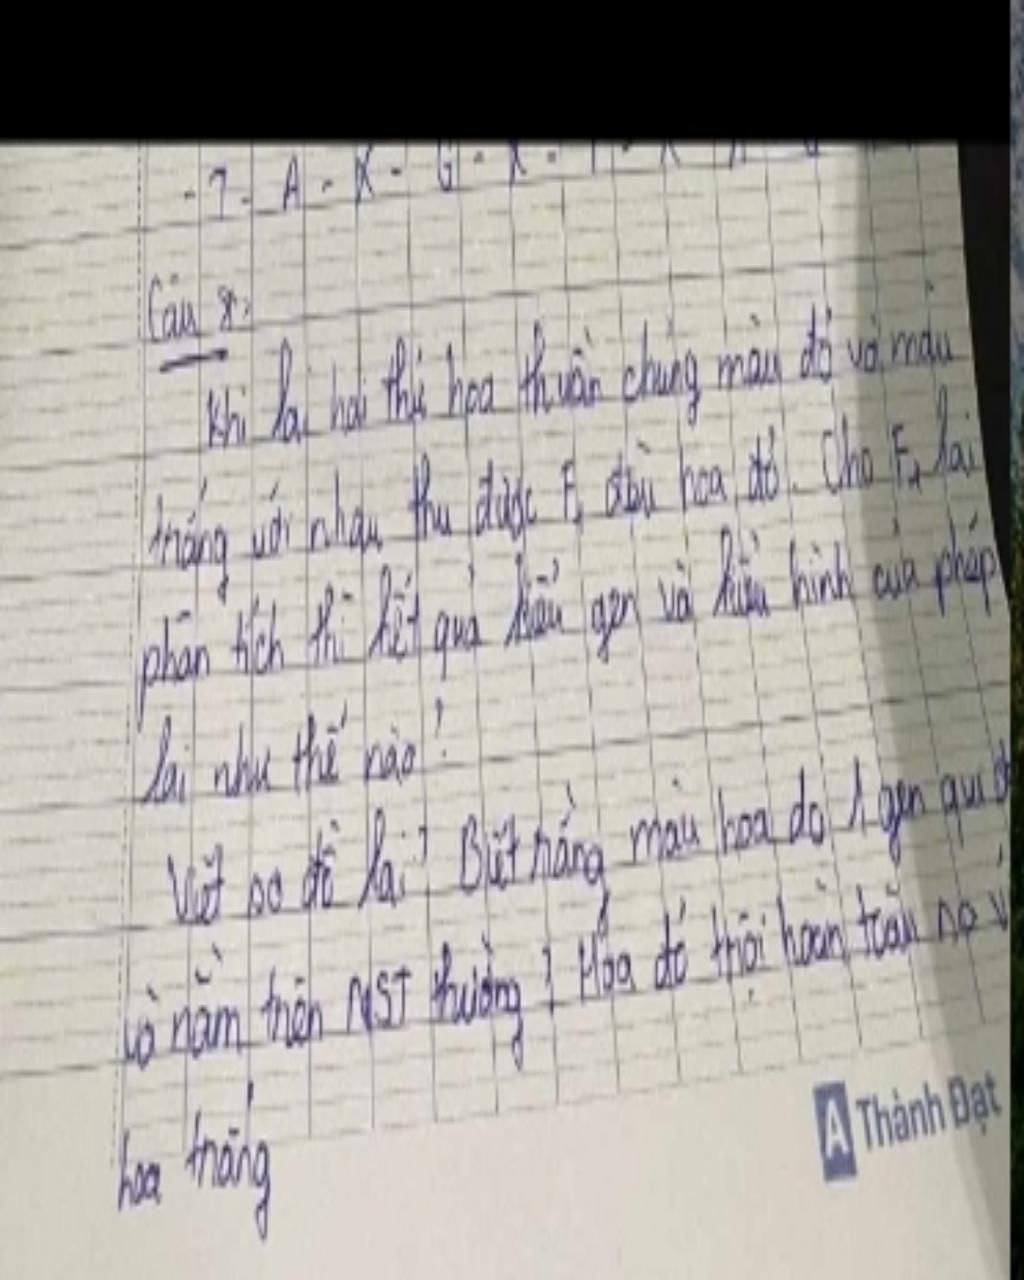 - T - A - X - G - X - T - X
Câu 8:
Khi lai hai thứ hoa thuần chủng màu đỏ và màu
trắng với nhau thu được F₁ đều hoa đỏ. Cho F₁ lai
phân tích thì kết quả kiểu gen và kiểu hình của phép
lai như thế nào?
Viết sơ đồ lai? Biết rằng màu hoa do 1 gen qui
và nằm trên NST thường? Hoa đỏ trội hoàn toàn so
hoa trắng
A Thành Đạt